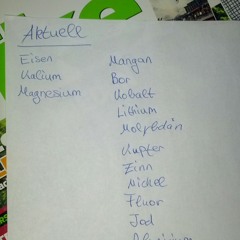 Aktuell
Eisen
Kalium
Magnesium
Mangan
Bor
Kobalt
Lithium
Molybdän
Kupfer
Zinn
Nickel
Fluor
Jod